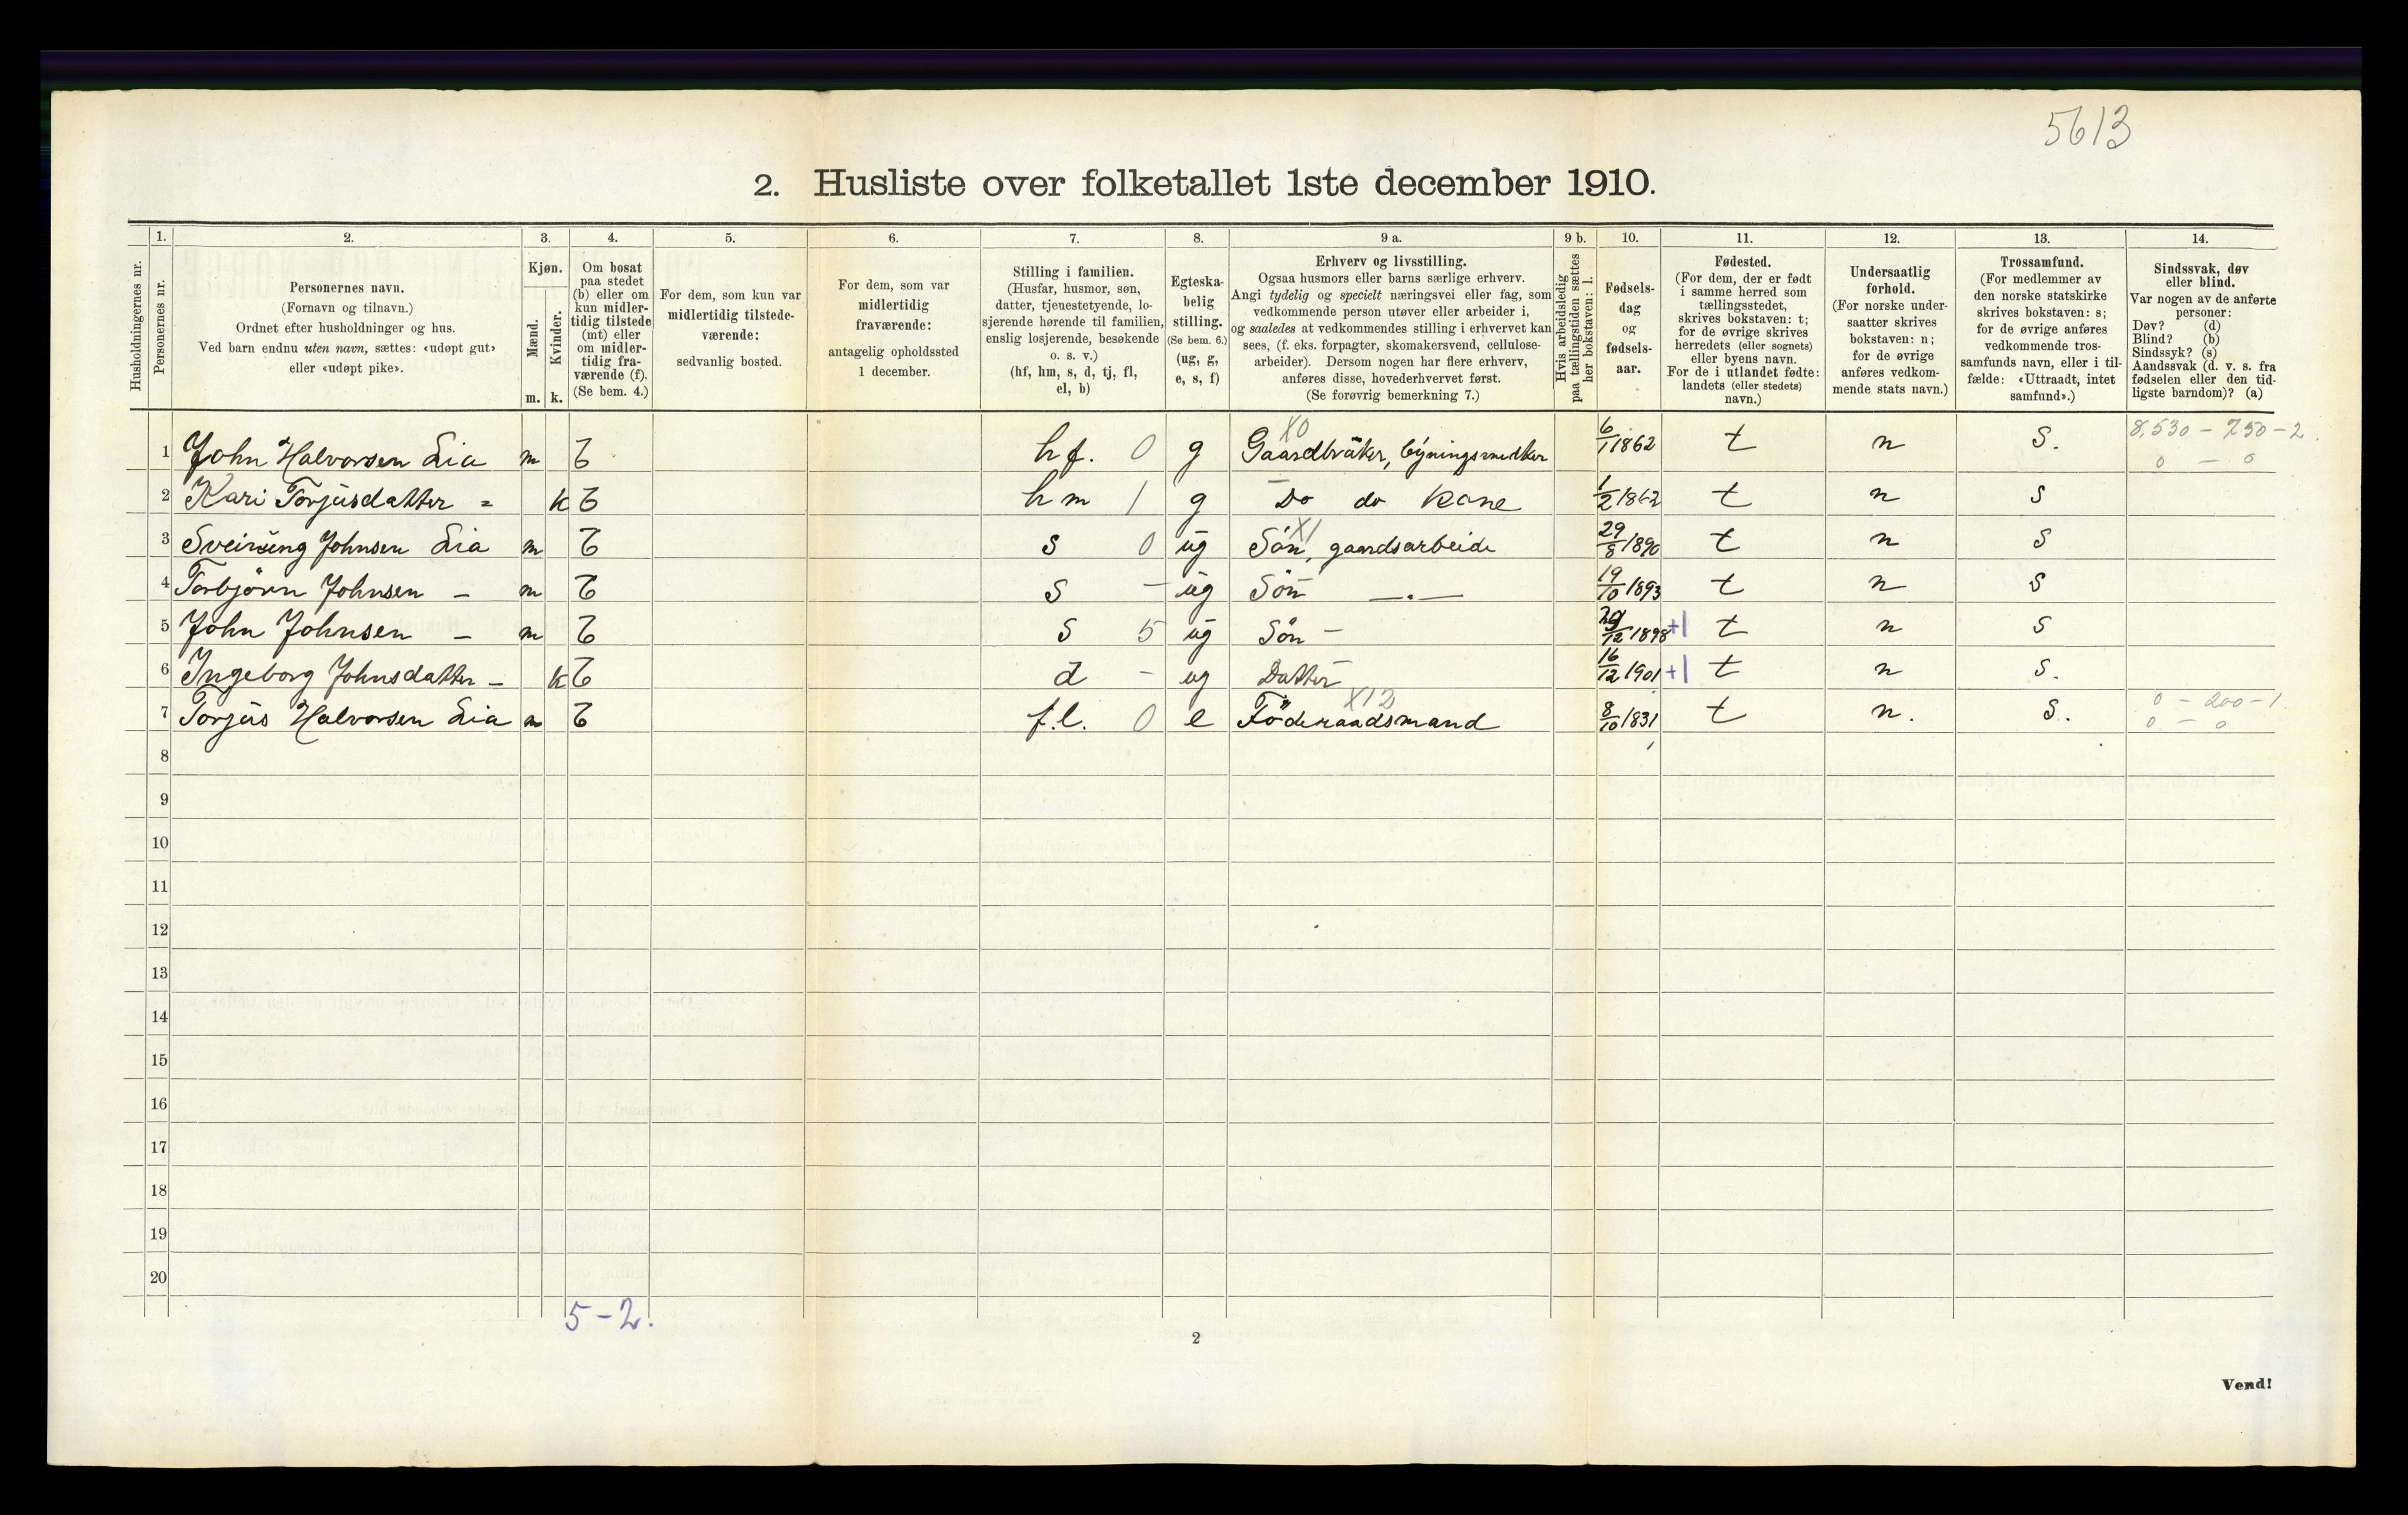 5613
2. Husliste over folketallet 1ste december 1910.
1. 2. 3. 4. 5. 6. 7. 8. 9 a. 9 b. 10. 11. 12. 13. 14.
Husholdningernes nr.
Personernes nr.
Personernes navn.
(Fornavn og tilnavn.)
Ordnet efter husholdninger og hus.
Ved barn endnu uten navn, sættes: «udøpt gut»
eller «udøpt pike».
Kjøn.
Mænd.
Kvinder.
m. k.
Om bosat
paa stedet
(b) eller om
kun midler-
tidig tilstede
(mt) eller
om midler-
tidig fra-
værende (f).
(Se bem. 4.)
For dem, som kun var
midlertidig tilstede-
værende:
sedvanlig bosted.
For dem, som var
midlertidig
fraværende:
antagelig opholdssted
1 december.
Stilling i familien.
(Husfar, husmor, søn,
datter, tjenestetyende, lo-
sjerende hørende til familien,
enslig losjerende, besøkende
o. s. v.)
(hf, hm, s, d, tj, fl,
el, b)
Egteska-
belig
stilling.
(Se bem. 6.)
(ug, g,
e, s, f)
Erhverv og livsstilling.
Ogsaa husmors eller barns særlige erhverv.
Angi tydelig og specielt næringsvei eller fag, som
vedkommende person utøver eller arbeider i,
og saaledes at vedkommendes stilling i erhvervet kan
sees, (f. eks. forpagter, skomakersvend, cellulose-
arbeider). Dersom nogen har flere erhverv,
anføres disse, hovederhvervet først.
(Se forøvrig bemerkning 7.)
Hvis arbeidsledig
paa tællingstiden sættes
her bokstaven: l.
Fødsels-
dag
og
fødsels-
aar.
Fødested.
(For dem, der er født
i samme herred som
tællingsstedet,
skrives bokstaven: t;
for de øvrige skrives
herredets (eller sognets)
eller byens navn.
For de i utlandet fødte:
landets (eller stedets)
navn.)
Undersaatlig
forhold.
(For norske under-
saatter skrives
bokstaven: n;
for de øvrige
anføres vedkom-
mende stats navn.)
Trossamfund.
(For medlemmer av
den norske statskirke
skrives bokstaven: s;
for de øvrige anføres
vedkommende tros-
samfunds navn, eller i til-
fælde: «Uttraadt, intet
samfund».)
Sindssvak, døv
eller blind.
Var nogen av de anførte
personer:
Døv? (d)
Blind? (b)
Sindssyk? (s)
Aandssvak (d. v. s. fra
fødselen eller den tid-
ligste barndom)? (a)
X0 8,530 - 750 - 2.
1 John Halvorsen Lia m b hf. 0 g Gaardbruker, 6/1 1862 t n S.
0 - 0
2 Kari Torjusdatter = k b hm 1 g Do do Kone 1/2 1862 t n S
X1
3 Sveinung Johnsen Lia m b s 0 ug Søn, gaardsarbeide 29/8 1890 t n S
4 Torbjörn Johnsen - m b s - ug Søn —.— 19/10 1893 t n S
5 John Johnsen - m b s 5 ug Søn - 29/12 1898 +1 t n S
6 Ingeborg Johnsdatter - k b d - ug Datter 16/12 1901 +1 t n S.
X12 0 - 200 - 1
7 Torjus Halvorsen Lia m b f.l. 0 e Föderaadsmand 8/10 1831 t n. S.
0 - 0
8
9
10
11
12
13
14
15
16
17
18
19
20
5 - 2.
2
Vend!